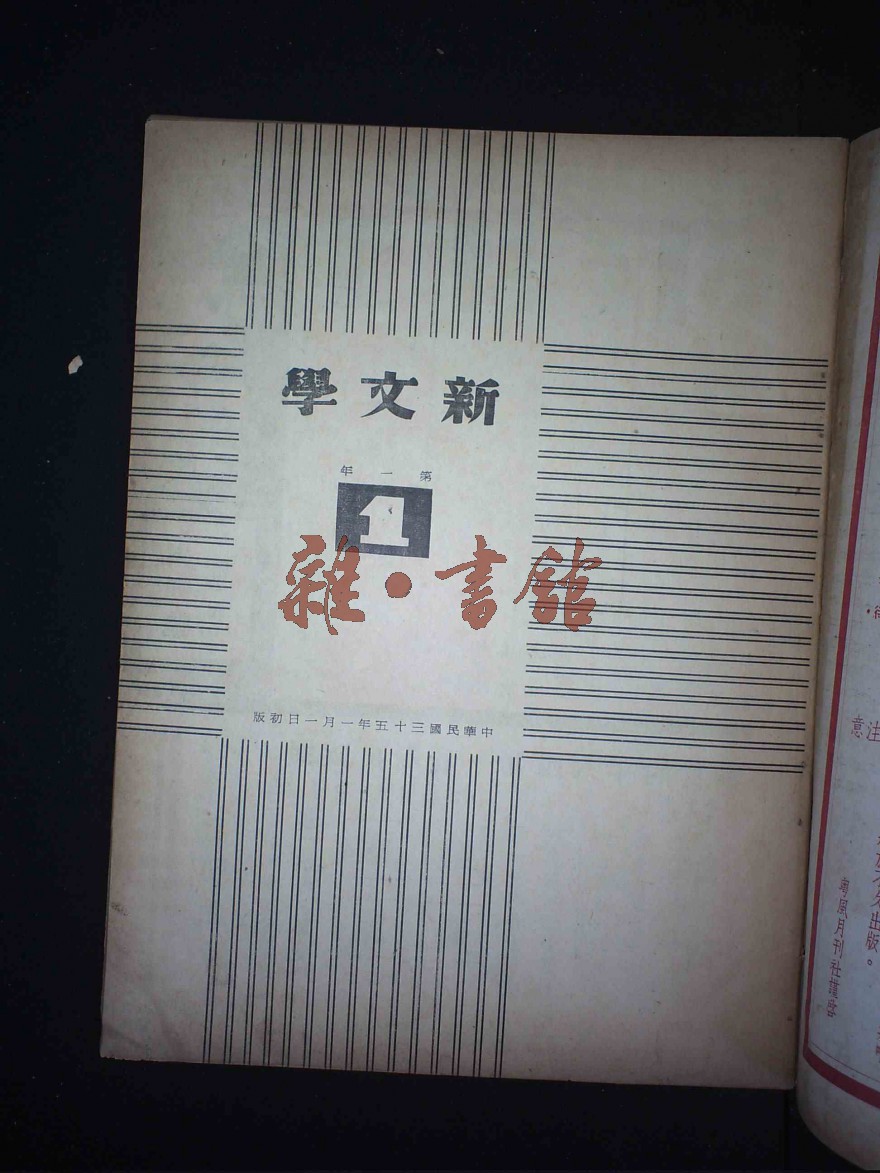 新文學
第一年
1
雜·書館
中華民國三十五年一月一日初版
注意
出版。
風月刊社謹啓